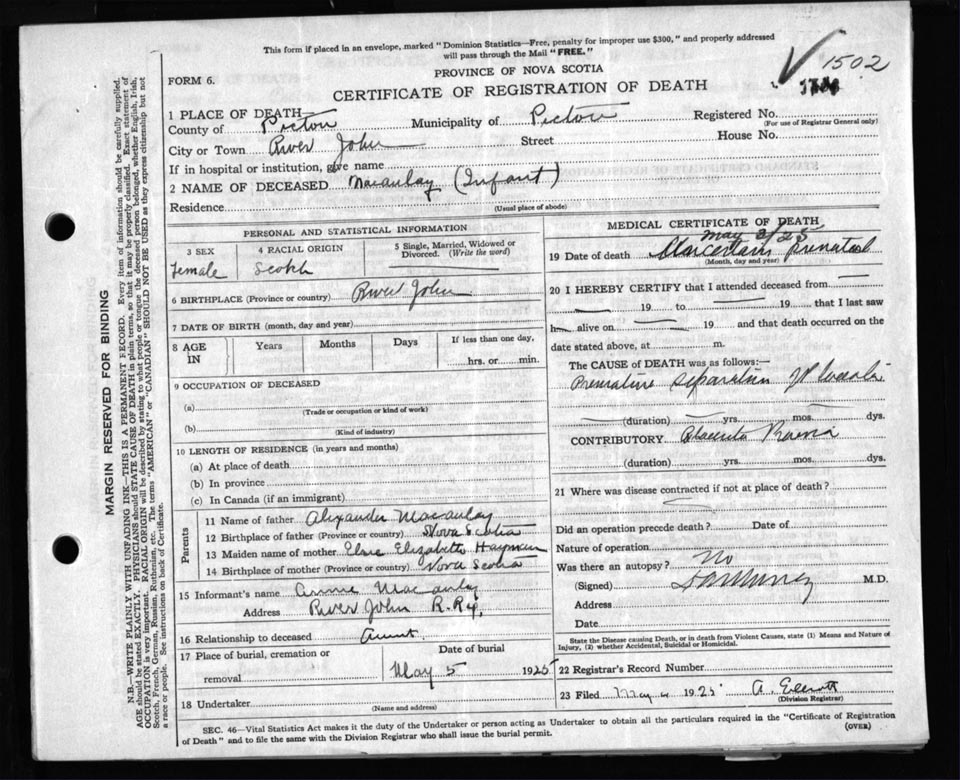 This form if placed in an envelope, marked "Dominion Statistics—Free, penalty for improper use $300," and properly addressed
will pass through the Mail "FREE."
PROVINCE OF NOVA SCOTIA
1502
FORM 6.
CERTIFICATE OF REGISTRATION OF DEATH
1 PLACE OF DEATH—
County of Pictou Municipality of Pictou Registered No.
(For use of Registrar General only)
City or Town River John Street House No.
If in hospital or institution, give name
2 NAME OF DECEASED Macaulay (Infant)
Residence
(Usual place of abode)
PERSONAL AND STATISTICAL INFORMATION
3 SEX 4 RACIAL ORIGIN 5 Single, Married, Widowed or
Divorced. (Write the word)
Female Scotch
6 BIRTHPLACE (Province or country) River John
7 DATE OF BIRTH (month, day and year)
8 AGE IN Years Months Days If less than one day,
hrs. or min.
9 OCCUPATION OF DECEASED
(a)
(Trade or occupation or kind of work)
(b)
(Kind of industry)
10 LENGTH OF RESIDENCE (in years and months)
(a) At place of death
(b) In province
(c) In Canada (if an immigrant)
Parents
11 Name of father Alexander Macaulay
12 Birthplace of father (Province or country) Nova Scotia
13 Maiden name of mother Elsie Elizabeth Hayman
14 Birthplace of mother (Province or country) Nova Scotia
15 Informant's name Annie Macaulay
Address River John R.R 4,
16 Relationship to deceased Aunt.
17 Place of burial, cremation or
removal
Date of burial
May 5 1925
18 Undertaker
(Name and address)
MEDICAL CERTIFICATE OF DEATH
May 3/25
19 Date of death Uncertain prenatal
(Month, day and year)
20 I HEREBY CERTIFY that I attended deceased from
19 to 19 that I last saw
h alive on 19 and that death occurred on the
date stated above, at m.
The CAUSE OF DEATH was as follows:—
Premature separation of Placenta
(duration) yrs. mos. dys.
CONTRIBUTORY Placenta Praevia
(duration) yrs. mos. dys.
21 Where was disease contracted if not at place of death?
Did an operation precede death? Date of
Nature of operation
Was there an autopsy? No
(Signed) M.D.
Address
Date
State the Disease causing Death, or in death from Violent Causes, state (1) Means and Nature of
Injury, (2) whether Accidental, Suicidal or Homicidal.
22 Registrar's Record Number
23 Filed May 4 1925 A Elliott
(Division Registrar)
SEC. 46—Vital Statistics Act makes it the duty of the Undertaker or person acting as Undertaker to obtain all the particulars required in the "Certificate of Registration
of Death" and to file the same with the Division Registrar who shall issue the burial permit.
(OVER)
MARGIN RESERVED FOR BINDING
N.B.—WRITE PLAINLY WITH UNFADING INK—THIS IS A PERMANENT RECORD. Every item of information should be carefully supplied.
AGE should be stated EXACTLY. PHYSICIANS should STATE CAUSE OF DEATH in plain terms, so that it may be properly classified. Exact statement of
OCCUPATION is very important. RACIAL ORIGIN will be described by stating to what people or tongue the deceased person belonged, whether English, Irish,
Scotch, French, German, Russian, Ruthenian, etc. The terms "AMERICAN" or "CANADIAN" SHOULD NOT BE USED as they express citizenship but not
a race or people. See instructions on back of Certificate.